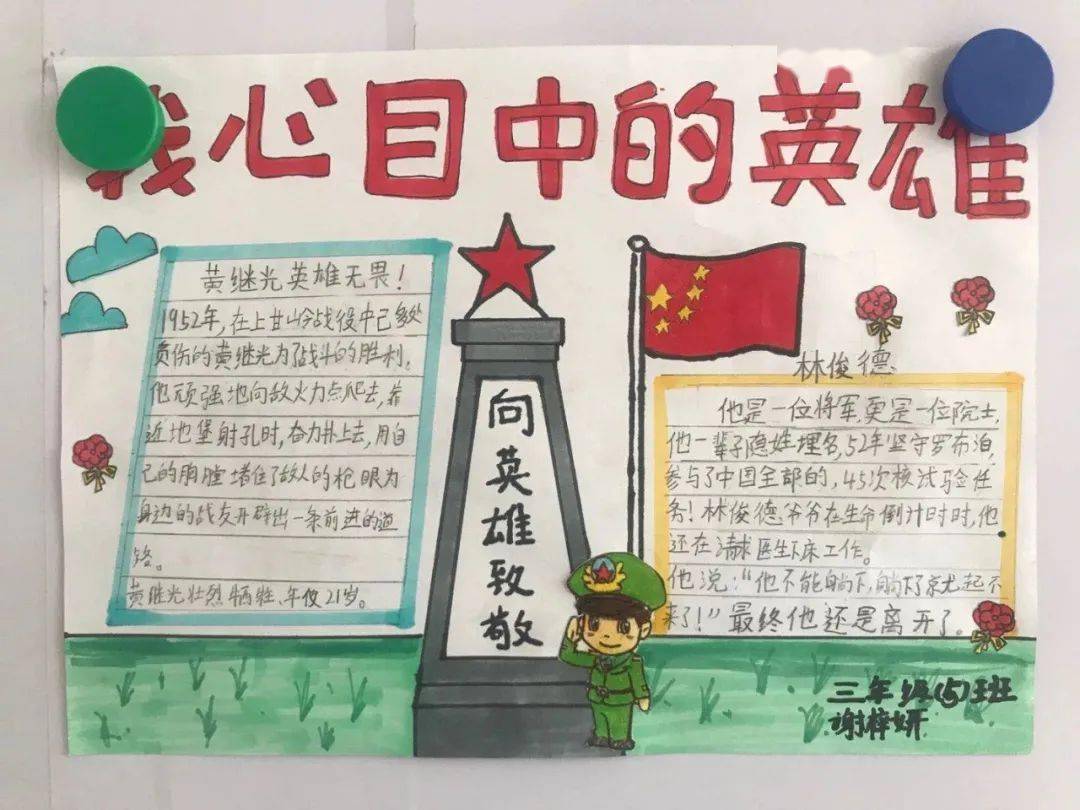 我心目中的英雄
黄继光英雄无畏！
1952年，在上甘岭战役中已多处
负伤的黄继光为了战斗的胜利，
他顽强地向敌火力点爬去，靠
近地堡射孔时，奋力扑上去，用自
己的胸膛堵住了敌人的枪眼为
身边的战友开辟出一条前进的道
路。
黄继光壮烈牺牲、年仅21岁。
向英雄致敬
林俊德
他是一位将军，更是一位院士，
他一辈子隐姓埋名，52年坚守罗布泊，
参与了中国全部的，45次核试验任
务！林俊德爷爷在生命倒计时时，他
还在请求医生下床工作。
他说：“他不能躺下，躺下了就起不
来了！”最终他还是离开了。
三年级(5)班
谢梓妍